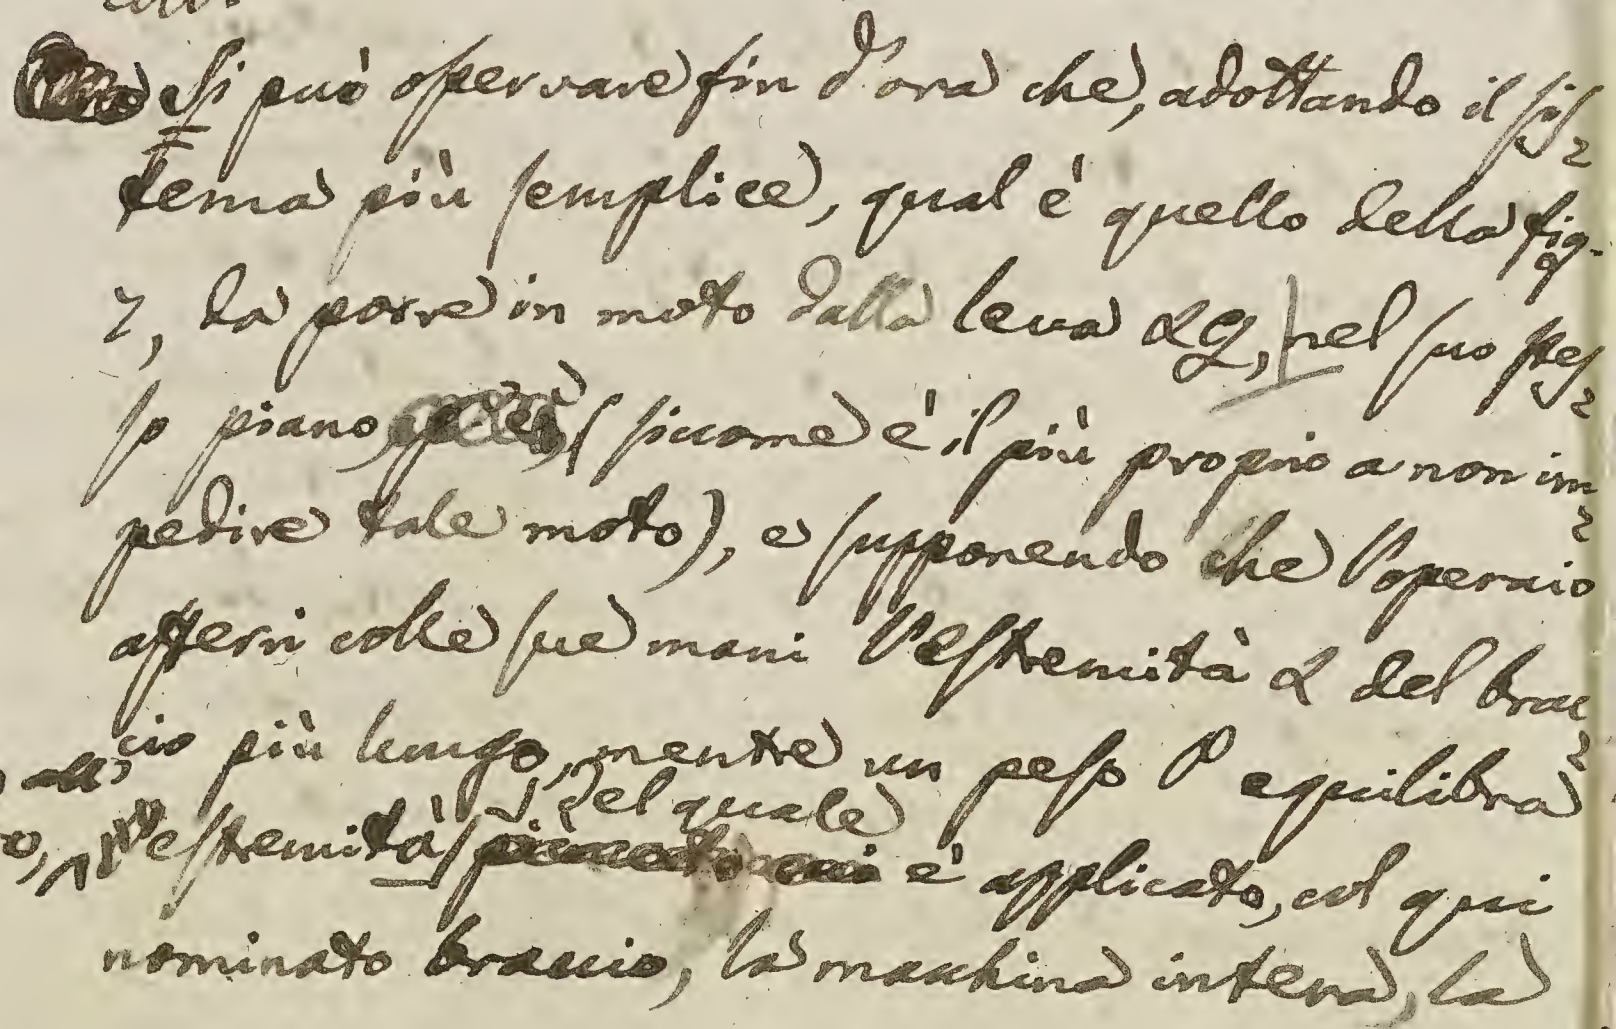 Si può osservare fin d'ora che, adottando il sis=
tema più semplice, qual è quello della fig.
7, da porre in moto dalla leva αQ, nel suo stes=
so piano, (siccome è il più proprio a non im=
pedire tale moto), e supponendo che l'operaio
afferri colle sue mani l'estremità α del brac=
cio più lungo, mentre un peso P equilibra
del quale
l'estremità è applicato, col qui
nominato braccio, la macchina intera, la